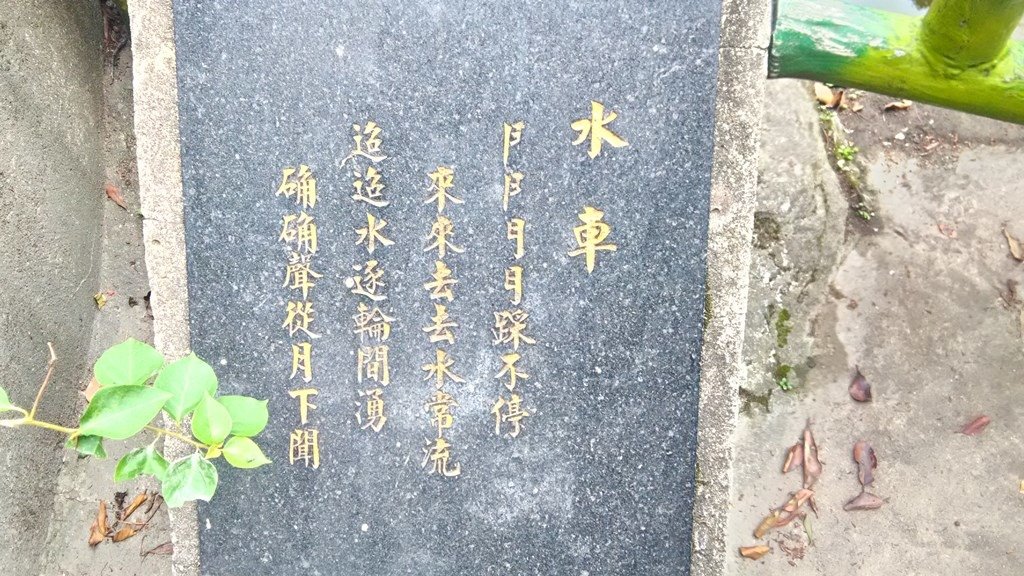 水車
𠁣𠁣𠃛𠃛踩不停
來來去去水常流
迨迨水逐輪間湧
确确聲從月下聞